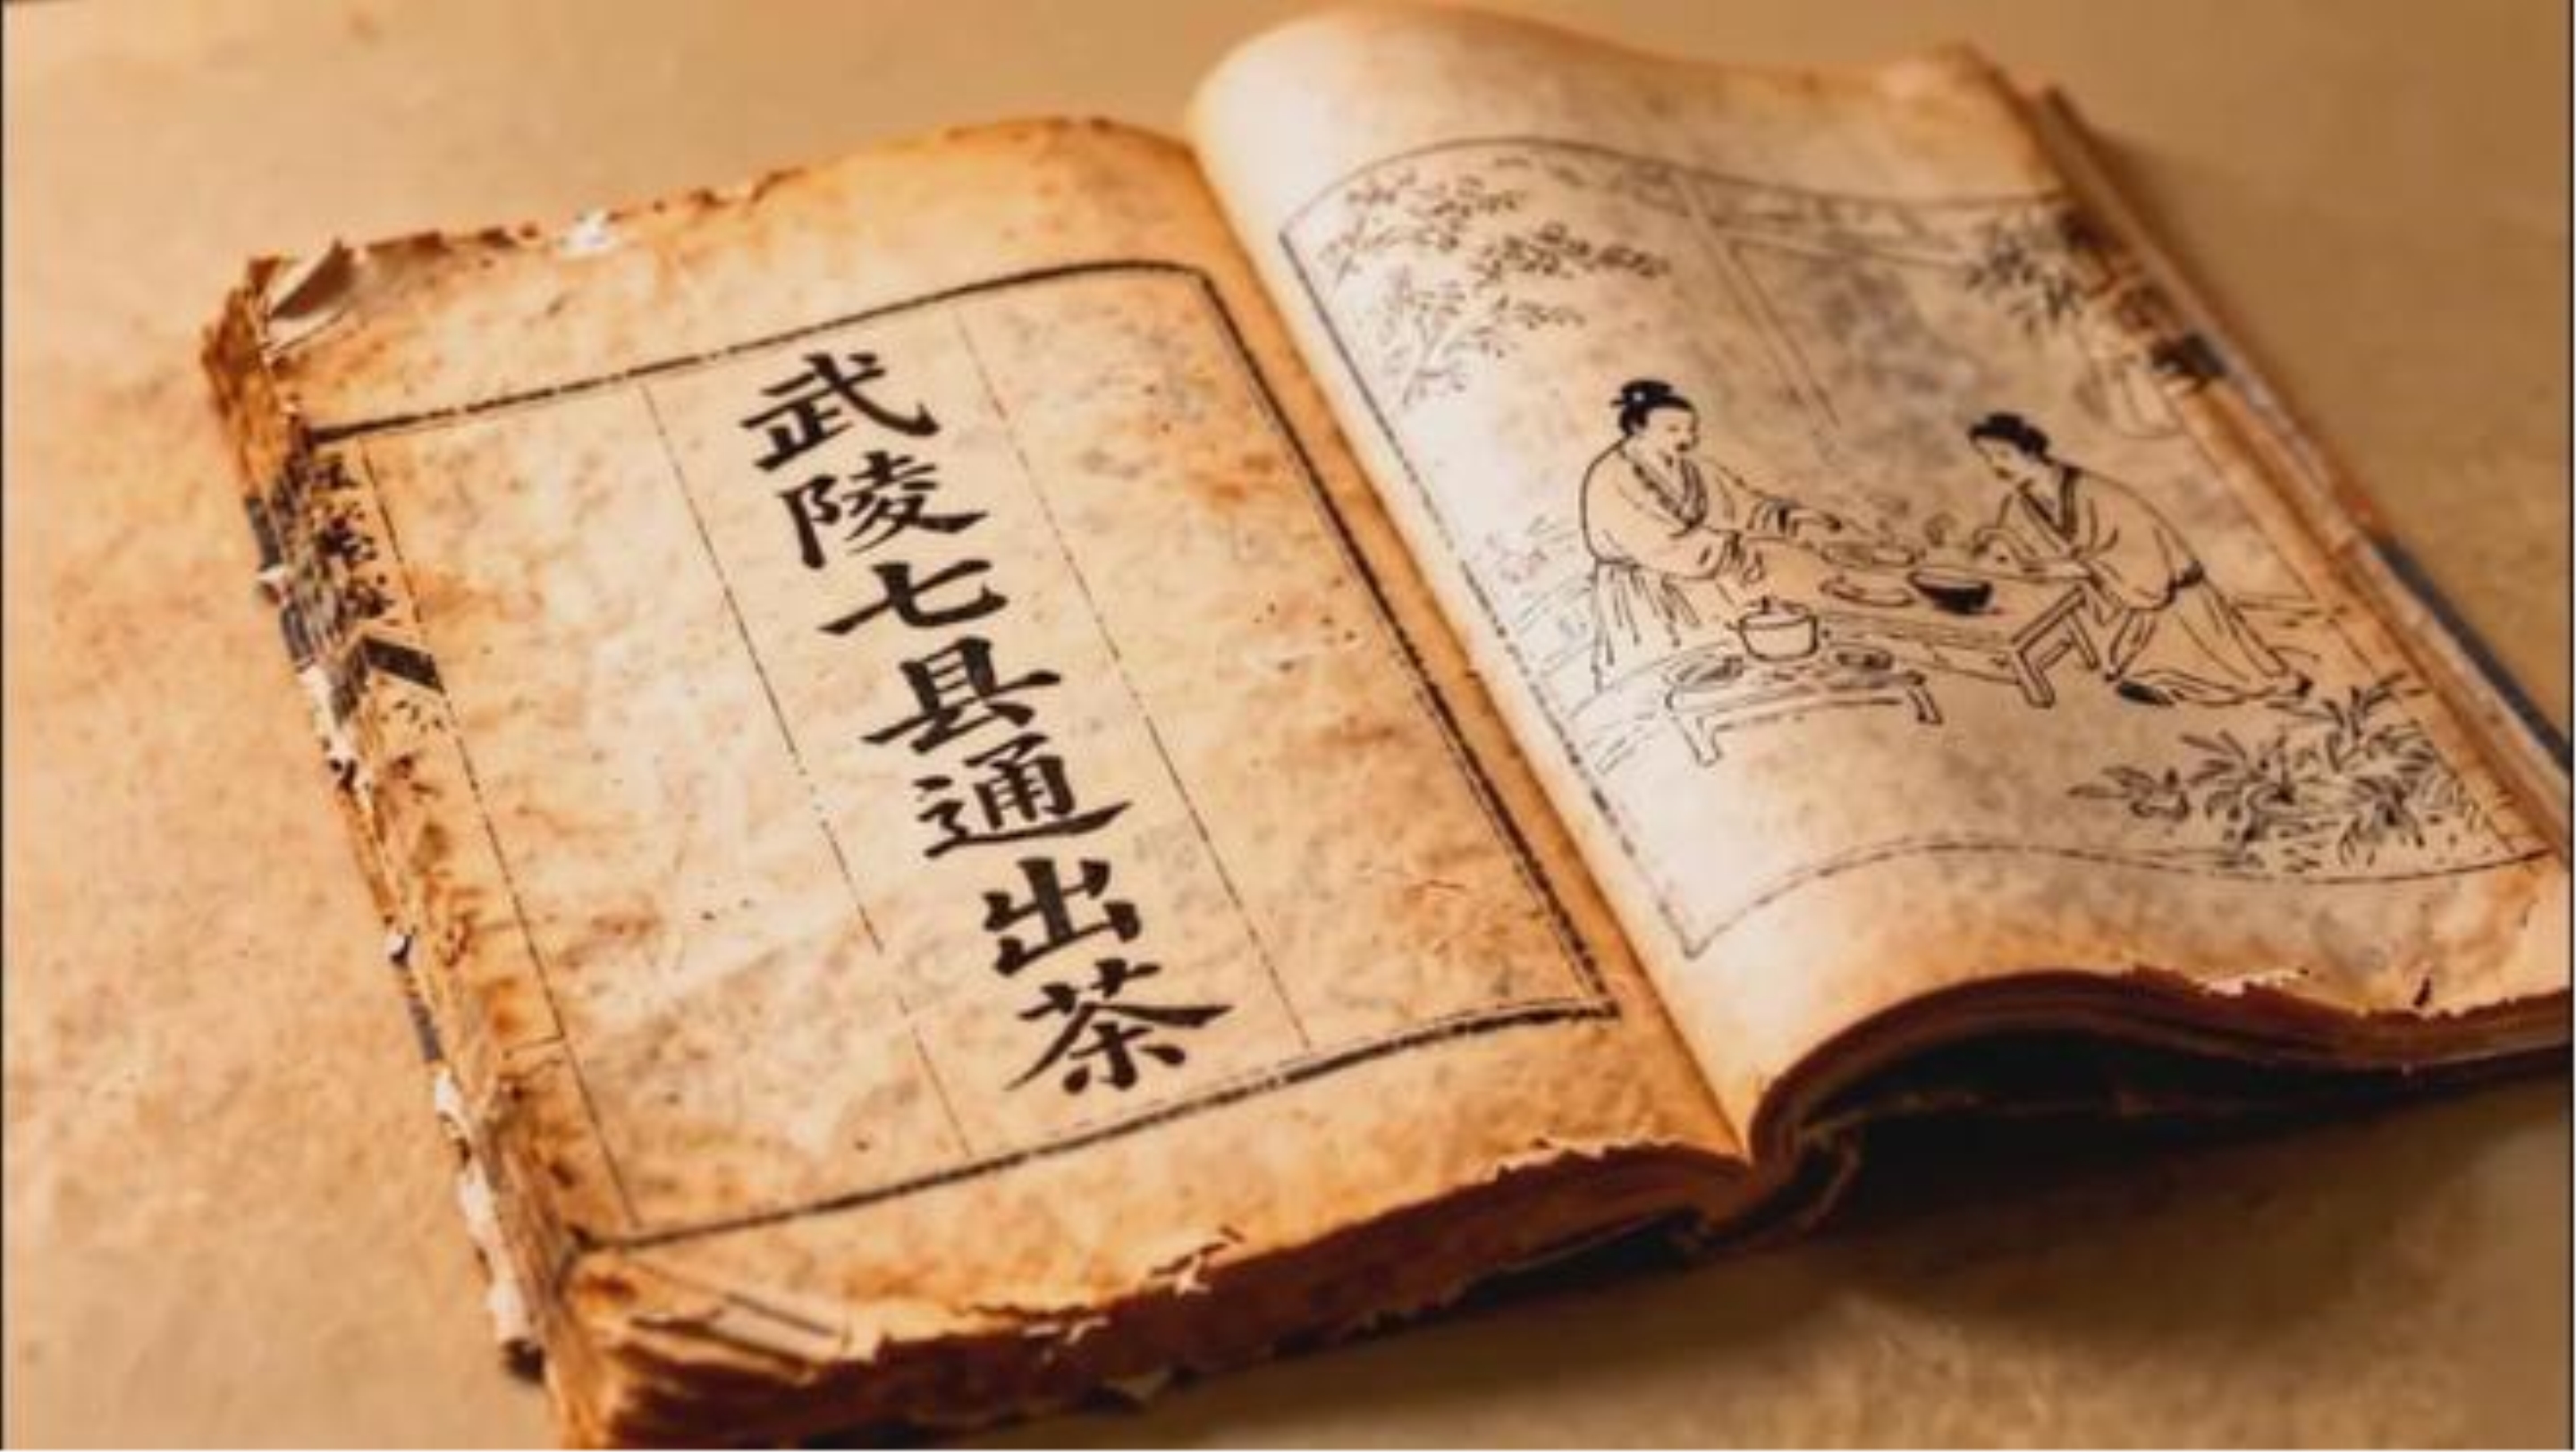 武陵七县通出茶